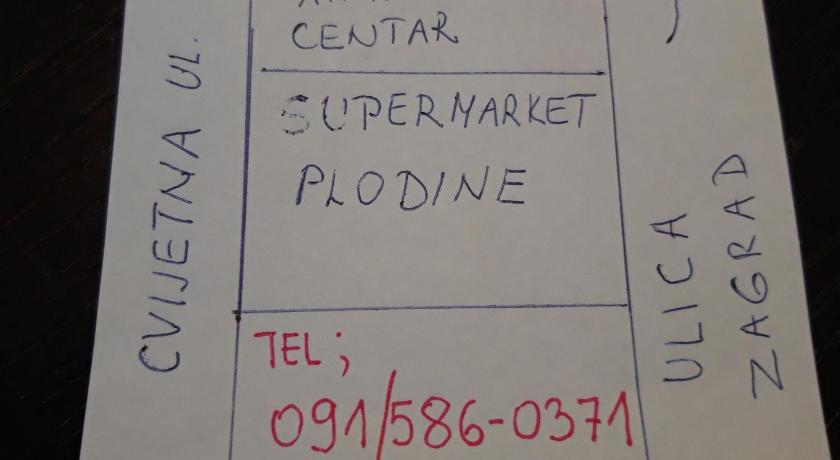 CENTAR
SUPERMARKET
PLODINE
TEL;
091/586-0371
CVIJETNA UL.
ULICA
ZAGRAD